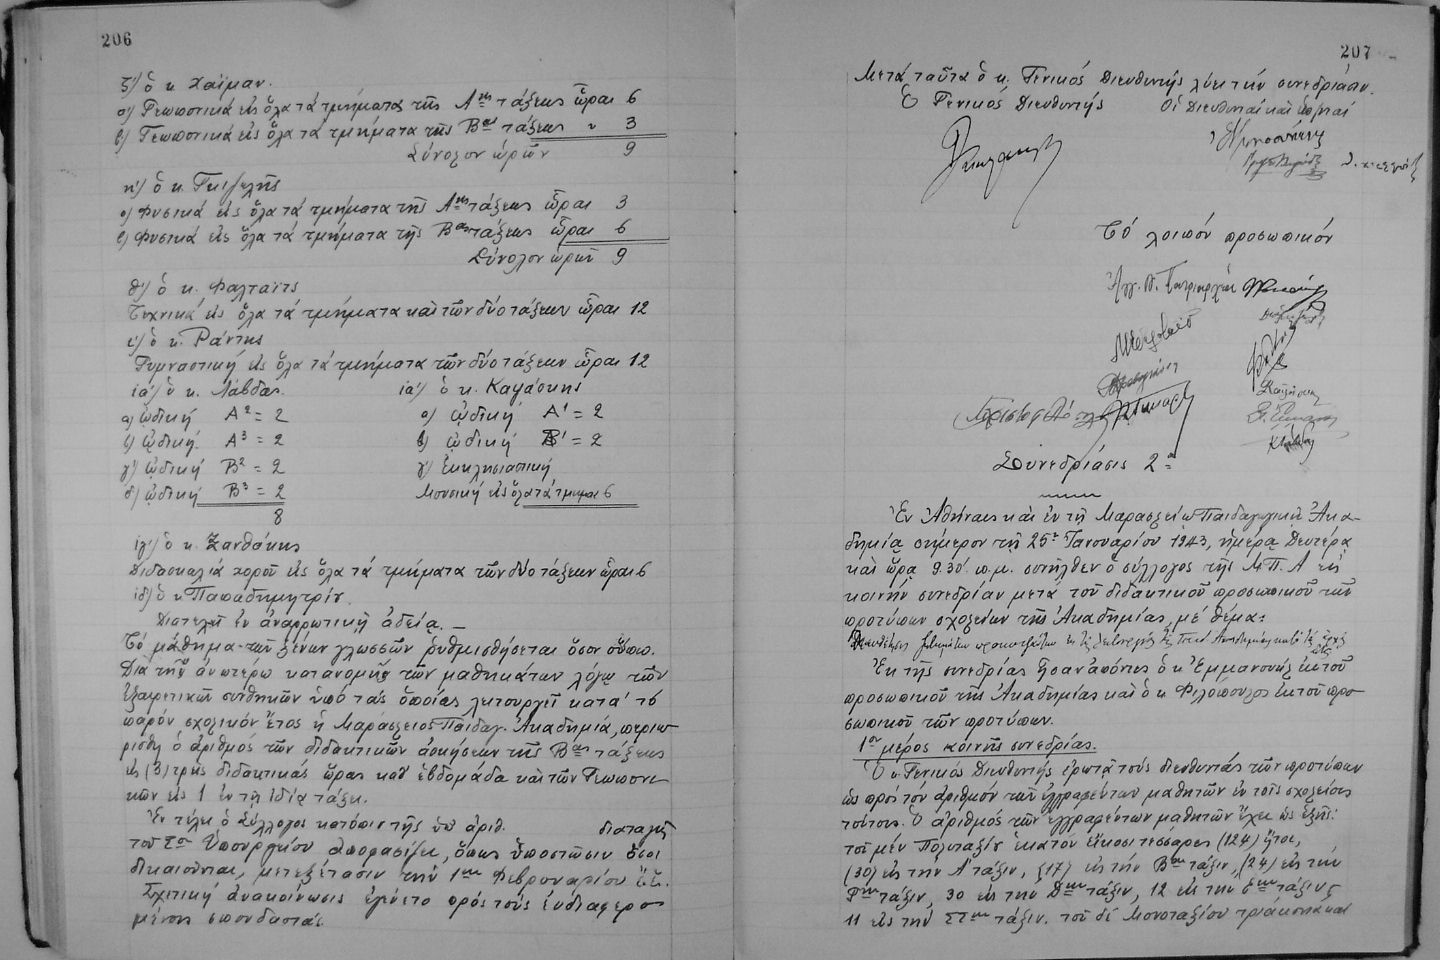 206
ζ') ὁ κ. Χάϊμαν.
α) Γεωπονικά εἰς ὅλα τά τμήματα τῆς Αης τάξεως ὧραι 6
β) Γεωπονικά εἰς ὅλα τά τμήματα τῆς Βας τάξεως " 3
Σύνολον ὡρῶν 9
η') ὁ κ. Γκιζελῆς
α) Φυσικά εἰς ὅλα τά τμήματα τῆς Αης τάξεως ὧραι 3
β) Φυσικά εἰς ὅλα τά τμήματα τῆς Βας τάξεως ὧραι 6
Σύνολον ὡρῶν 9
θ') ὁ κ. Φαλτάϊτς
Τεχνικά εἰς ὅλα τά τμήματα καί τῶν δύο τάξεων ὧραι 12
ι') ὁ κ. Ράντης
Γυμναστική εἰς ὅλα τά τμήματα τῶν δύο τάξεων ὧραι 12
ια') ὁ κ. Λάβδας. ια') ὁ κ. Καψάσκης
α) ᾠδική Α² = 2 α) ᾠδική Α¹ = 2
β) ᾠδική Α³ = 2 β) ᾠδική Β¹ = 2
γ) ᾠδική Β² = 2 γ) Ἐκκλησιαστική
δ) ᾠδική Β³ = 2 Μουσική εἰς ὅλα τά τμήματα 6
8
ιγ') ὁ κ. Ξανθάκης
Διδασκαλία χοροῦ εἰς ὅλα τά τμήματα τῶν δύο τάξεων ὧραι 6
ιδ') ὁ κ Παπαδημητρίου.
Διατελεῖ ἐν ἀναρρωτικῇ ἀδείᾳ. —
Τό μάθημα τῶν ξένων γλωσσῶν ῥυθμισθήσεται ὅσον οὔπω.
Διά τῆς ἀνωτέρω κατανομῆς τῶν μαθημάτων λόγῳ τῶν
ἐξαιρετικῶν συνθηκῶν ὑπό τάς ὁποίας λειτουργεῖ κατά τό
παρόν σχολικόν ἔτος ἡ Μαράσλειος Παιδαγ. Ἀκαδημία, περιω-
ρίσθη ὁ ἀριθμός τῶν διδακτικῶν ἀσκήσεων τῆς Βας τάξεως
εἰς (3) τρεῖς διδακτικάς ὥρας καθ' ἑβδομάδα καί τῶν Γεωπονι-
κῶν εἰς 1 ἐν τῇ ἰδίᾳ τάξει.
Ἐν τέλει ὁ Σύλλογος κατόπιν τῆς ὑπ' ἀριθ. διαταγῆς
τοῦ Σοῦ Ὑπουργείου ἀποφασίζει, ὅπως ὑποστῶσιν ὅσοι
δικαιοῦνται, μετεξέτασιν τήν 1ην Φεβρουαρίου ἔ.ἔ.
Σχετική ἀνακοίνωσις ἐγένετο πρός τούς ἐνδιαφερο-
μένους σπουδαστάς.
207
Μετά ταῦτα ὁ κ. Γενικός Διευθυντής λύει τήν συνεδρίασιν.
Ὁ Γενικός Διευθυντής Οἱ Διευθυνταί καί ὑφηγηταί
Τό λοιπόν προσωπικόν
Συνεδρίασις 2α
Ἐν Ἀθήναις καί ἐν τῇ Μαρασλείῳ Παιδαγωγικῇ Ἀκα-
δημίᾳ σήμερον τῇ 25ῃ Ἰανουαρίου 1943, ἡμέρᾳ Δευτέρᾳ
καί ὥρᾳ 9.30' π.μ. συνῆλθεν ὁ σύλλογος τῆς Μ.Π.Α εἰς
κοινήν συνεδρίαν μετά τοῦ διδακτικοῦ προσωπικοῦ τῶν
προτύπων σχολείων τῆς Ἀκαδημίας, μέ θέμα:
Ἐκ τῆς συνεδρίας ἦσαν ἀπόντες ὁ κ Ἐμμανουήλ ἐκ τοῦ
προσωπικοῦ τῆς Ἀκαδημίας καί ὁ κ Φιλόπουλος ἐκ τοῦ προ-
σωπικοῦ τῶν προτύπων.
1ον μέρος κοινῆς συνεδρίας.
Ὁ κ. Γενικός Διευθυντής ἐρωτᾷ τούς διευθυντάς τῶν προτύπων
ὡς πρός τόν ἀριθμόν τῶν ἐγγραφέντων μαθητῶν ἐν τοῖς σχολείοις
τούτοις. Ὁ ἀριθμός τῶν ἐγγραφέντων μαθητῶν ἔχει ὡς ἑξῆς:
τοῦ μέν Πολυταξίου ἑκατόν εἴκοσι τέσσαρες (124) ἤτοι,
(30) εἰς τήν Α' τάξιν, (17) εἰς τήν Βαν τάξιν, (24) εἰς τήν
Γην τάξιν, 30 εἰς τήν Δην τάξιν, 12 εἰς τήν Εην τάξιν καί
11 εἰς τήν ΣΤην τάξιν. τοῦ δέ Μονοταξίου τριάκοντα καί